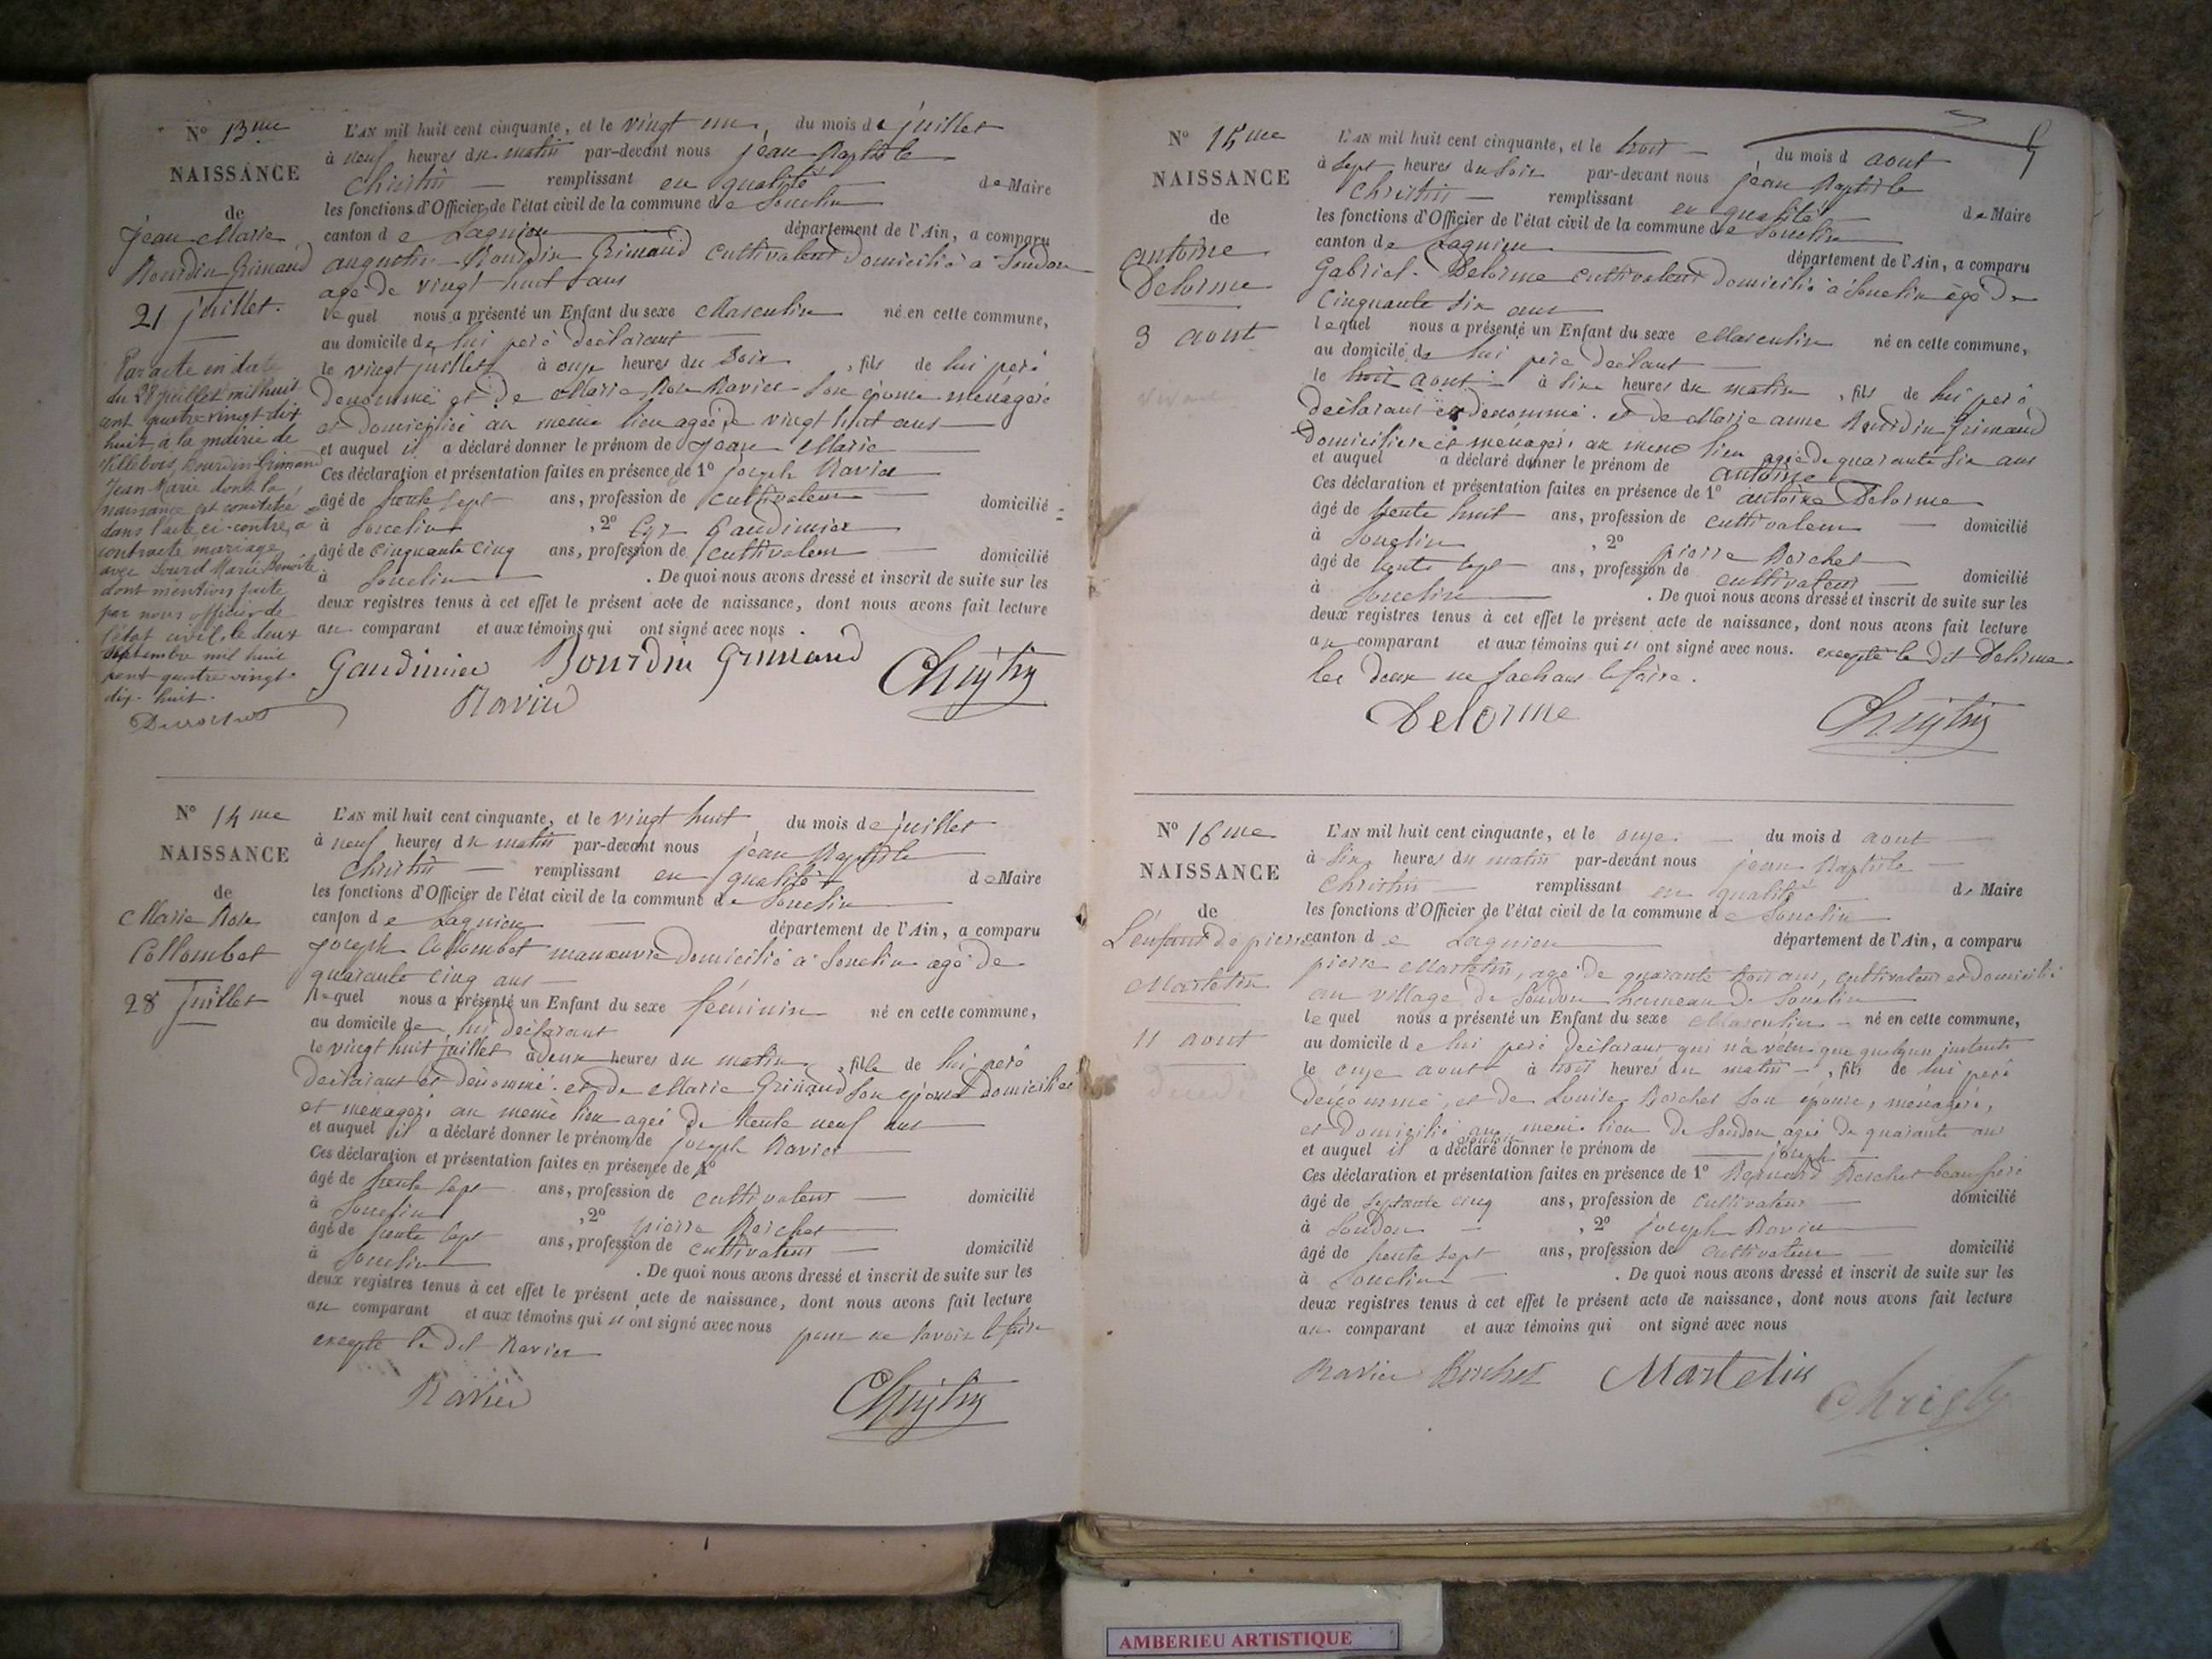 N° 13me
NAISSANCE
de
Jean Marie
Bourdin Grimaud
21 juillet.
Par acte en date
du 28 juillet mil huit
cent quatre vingt dix
huit, à la mairie de
Villebois, Bourdin Grimaud
Jean Marie dont la
naissance est constatée
dans l'acte ci-contre, a
contracté mariage
avec Sourd Marie Benoite
dont mention faite
par nous officier de
l'état civil, le deux
septembre mil huit
cent quatre vingt
dix-huit.
L'AN mil huit cent cinquante, et le vingt un, du mois de juillet
à neuf heures du matin par-devant nous jean Baptiste
Christin remplissant en qualité de Maire
les fonctions d'Officier de l'état civil de la commune de Souclin
canton de Lagnieu département de l'Ain, a comparu
augustin Bourdin Grimaud cultivateur domicilié à Soudon
agé de vingt huit ans
lequel nous a présenté un Enfant du sexe Masculin né en cette commune,
au domicile de lui pere déclarant
le vingt juillet à onze heures du Soir, fils de lui pere
denommé et de Marie Rose Ravier Son épouse ménagere
et domiciliée au meme lieu agée de vingt huit ans
et auquel il a déclaré donner le prénom de Jean Marie
Ces déclaration et présentation faites en présence de 1° joseph Ravier
âgé de trente sept ans, profession de cultivateur domicilié
à Souclin, 2° Gaudimier
âgé de cinquante cinq ans, profession de cultivateur domicilié
à Souclin. De quoi nous avons dressé et inscrit de suite sur les
deux registres tenus à cet effet le présent acte de naissance, dont nous avons fait lecture
au comparant et aux témoins qui ont signé avec nous.
Gaudimier Bourdin Grimaud Christin
Ravier
N° 14me
NAISSANCE
de
Marie Rose
Collombet
28 Juillet
L'AN mil huit cent cinquante, et le vingt huit du mois de juillet
à neuf heures du matin par-devant nous jean Baptiste
Christin remplissant en qualité de Maire
les fonctions d'Officier de l'état civil de la commune de Souclin
canton de Lagnieu département de l'Ain, a comparu
joseph Collombet manœuvre domicilié à Souclin agé de
quarante cinq ans
lequel nous a présenté un Enfant du sexe féminin né en cette commune,
au domicile de lui déclarant
le vingt huit juillet à deux heures du matin, fille de lui pere
déclarant et dénommé. et de Marie Grimaud Son épouse domiciliée
et ménagere au meme lieu agée de trente neuf ans
et auquel il a déclaré donner le prénom de joseph Ravier
Ces déclaration et présentation faites en présence de 1°
âgé de trente sept ans, profession de cultivateur domicilié
à Souclin, 2° pierre Borchet
âgé de trente sept ans, profession de cultivateur domicilié
à Souclin. De quoi nous avons dressé et inscrit de suite sur les
deux registres tenus à cet effet le présent acte de naissance, dont nous avons fait lecture
au comparant et aux témoins qui ont signé avec nous pour ne savoir le faire
excepté le dit Ravier
Ravier Christin
N° 15me
NAISSANCE
de
antoine
Delorme
3 aout
L'AN mil huit cent cinquante, et le trois du mois d aout
à sept heures du Soir par-devant nous jean Baptiste
Christin remplissant en qualité de Maire
les fonctions d'Officier de l'état civil de la commune de Souclin
canton de Lagnieu département de l'Ain, a comparu
Gabriel Delorme cultivateur domicilié à Souclin agé de
cinquante six ans
lequel nous a présenté un Enfant du sexe Masculin né en cette commune,
au domicile de lui père déclarant
le trois aout à six heures du matin, fils de lui pere
déclarant et denommé. et de Marie anne Bourdin Grimaud
Domiciliée et ménagere au meme lieu agée de quarante six ans
et auquel a déclaré donner le prénom de antoine
Ces déclaration et présentation faites en présence de 1° antoine Delorme
âgé de trente huit ans, profession de cultivateur domicilié
à Souclin, 2° pierre Borchet
âgé de trente sept ans, profession de cultivateur domicilié
à Souclin. De quoi nous avons dressé et inscrit de suite sur les
deux registres tenus à cet effet le présent acte de naissance, dont nous avons fait lecture
au comparant et aux témoins qui ont signé avec nous. excepté le dit Delorme
les deux ne sachant le faire.
Delorme Christin
N° 16me
NAISSANCE
de
L'enfant de pierre
Martelin
11 aout
L'AN mil huit cent cinquante, et le onze du mois d aout
à Six heures du matin par-devant nous jean Baptiste
Christin remplissant en qualité de Maire
les fonctions d'Officier de l'état civil de la commune de Souclin
canton de Lagnieu département de l'Ain, a comparu
pierre Martelin, agé de quarante trois ans, cultivateur et domicilié
au village de Soudon hameau de Souclin
lequel nous a présenté un Enfant du sexe Masculin né en cette commune,
au domicile de lui pere déclarant qui n'a vécu que quelques instants
le onze aout à trois heures du matin, fils de lui pere
dénommé, et de Louise Borchet Son épouse, ménagere,
et domicilié au meme lieu de Soudon agée de quarante ans
et auquel il a déclaré donner le prénom de joseph
Ces déclaration et présentation faites en présence de 1° Bernard Borchet beau père
âgé de septante cinq ans, profession de cultivateur domicilié
à Soudon, 2° joseph Ravier
âgé de trente sept ans, profession de cultivateur domicilié
à Souclin. De quoi nous avons dressé et inscrit de suite sur les
deux registres tenus à cet effet le présent acte de naissance, dont nous avons fait lecture
au comparant et aux témoins qui ont signé avec nous
Ravier Borchet Martelin Christin
AMBERIEU ARTISTIQUE